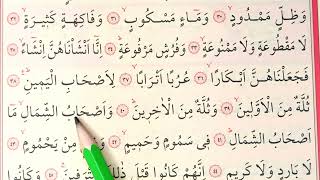 وَظِلٍّ مَمْدُودٍ ﴿٣٠﴾ وَمَاءٍ مَسْكُوبٍ ﴿٣١﴾ وَفَاكِهَةٍ كَثِيرَةٍ ﴿٣٢﴾
لَا مَقْطُوعَةٍ وَلَا مَمْنُوعَةٍ ﴿٣٣﴾ وَفُرُشٍ مَرْفُوعَةٍ ﴿٣٤﴾ اِنَّا اَنْشَأْنَاهُنَّ اِنْشَاءً ﴿٣٥﴾
فَجَعَلْنَاهُنَّ اَبْكَارًا ﴿٣٦﴾ عُرُبًا اَتْرَابًا ﴿٣٧﴾ لِاَصْحَابِ الْيَمِينِ ﴿٣٨﴾
ثُلَّةٌ مِنَ الْاَوَّلِينَ ﴿٣٩﴾ وَثُلَّةٌ مِنَ الْاٰخِرِينَ ﴿٤٠﴾ وَاَصْحَابُ الشِّمَالِ مَا
اَصْحَابُ الشِّمَالِ ﴿٤١﴾ فِي سَمُومٍ وَحَمِيمٍ ﴿٤٢﴾ مِنْ يَحْمُومٍ ﴿٤٣﴾
لَا بَارِدٍ وَلَا كَرِيمٍ ﴿٤٤﴾ اِنَّهُمْ كَانُوا قَبْلَ